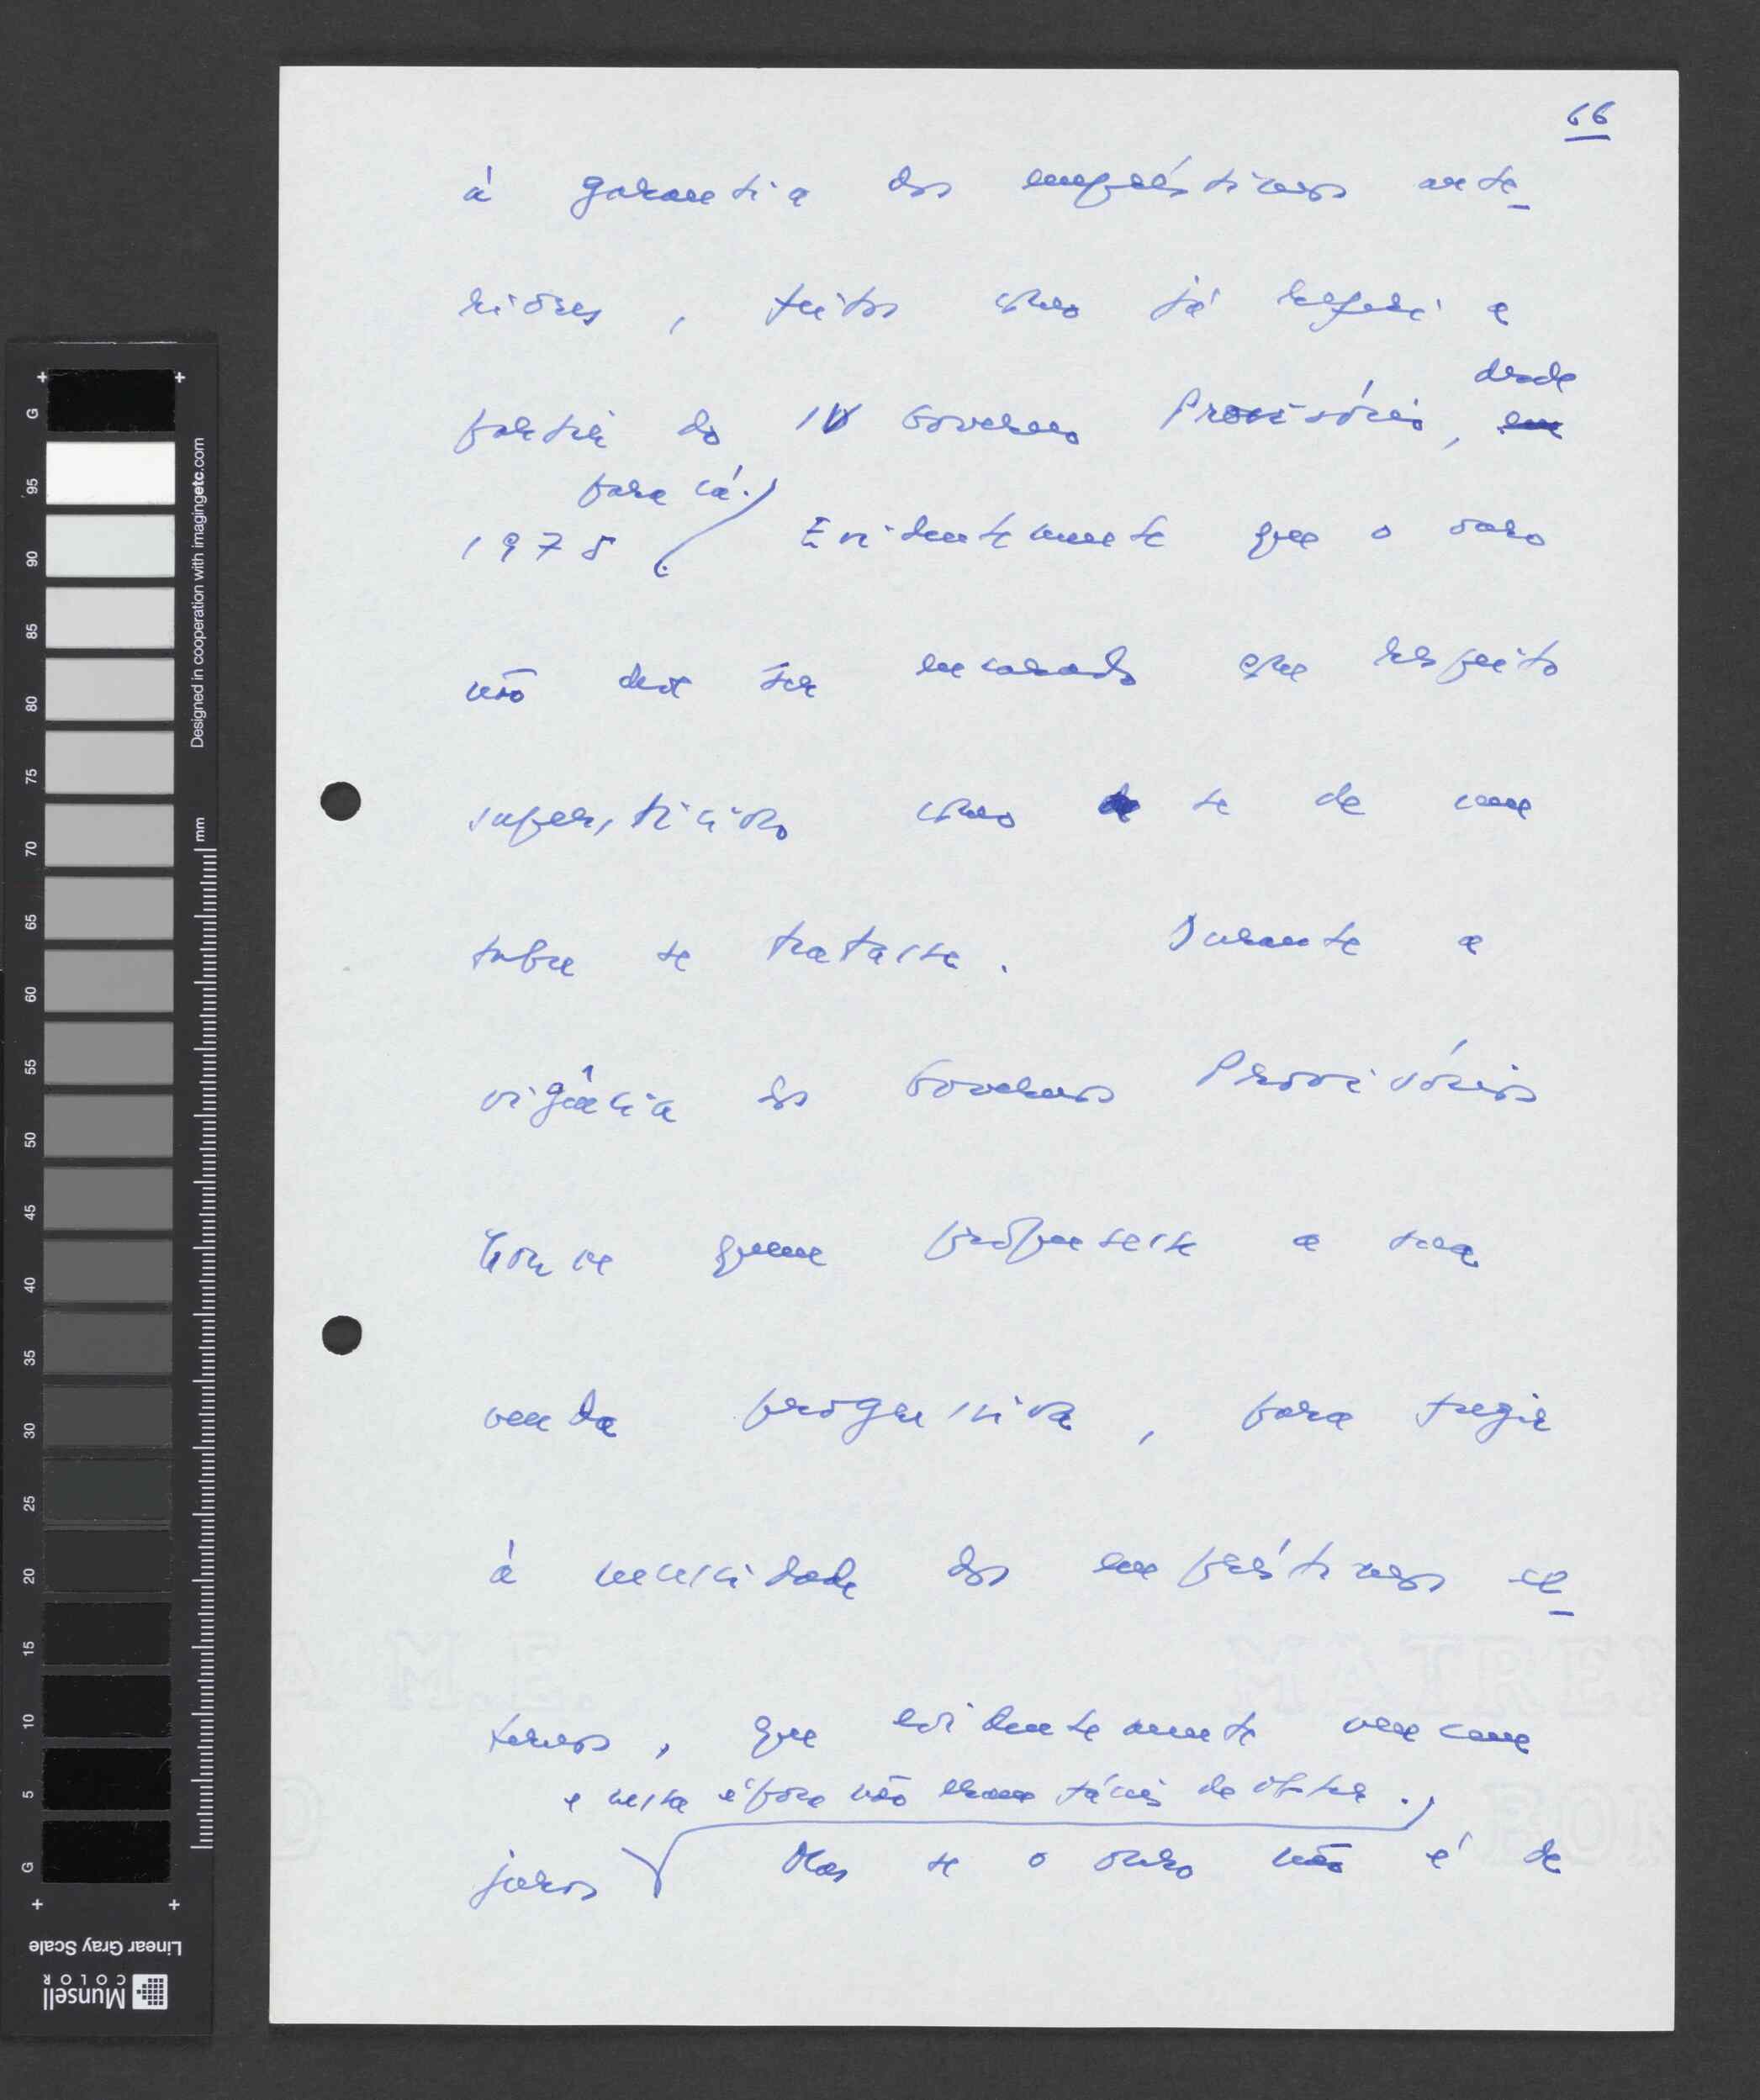 66
à garantia dos empréstimos ante-
riores, feitos como já referi a
partir do IV Governo Provisório, em desde
1975 para cá. Evidentemente que o ouro
não deve ser encarado com respeito
supersticioso como se de um
tabu se tratasse. Durante a
vigência dos Governos Provisórios
houve quem propusesse a sua
venda progressiva, para fugir
à necessidade dos empréstimos ex-
ternos, que evidentemente vencem
e nessa época não eram fáceis de obter.
juros Mas se o ouro não é de
Designed in cooperation with imagingetc.com
mm
G 95 90 85 80 75 70 65 60 55 50 45 40 35 30 25 20 15 10 5 G
Linear Gray Scale
Munsell
COLOR